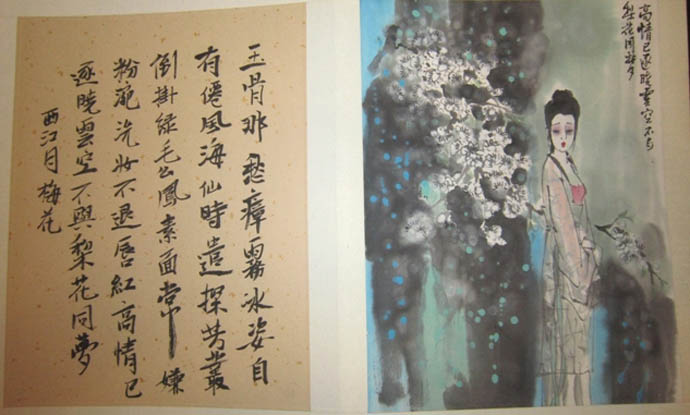 玉骨那愁瘴霧冰姿自
有僊風海仙時遣探芳叢
倒掛緑毛么鳳素面常嫌
粉涴洗妝不退唇紅高情已
逐曉雲空不與梨花同夢
西江月梅花
高情已逐曉雲空不与
梨花同梦